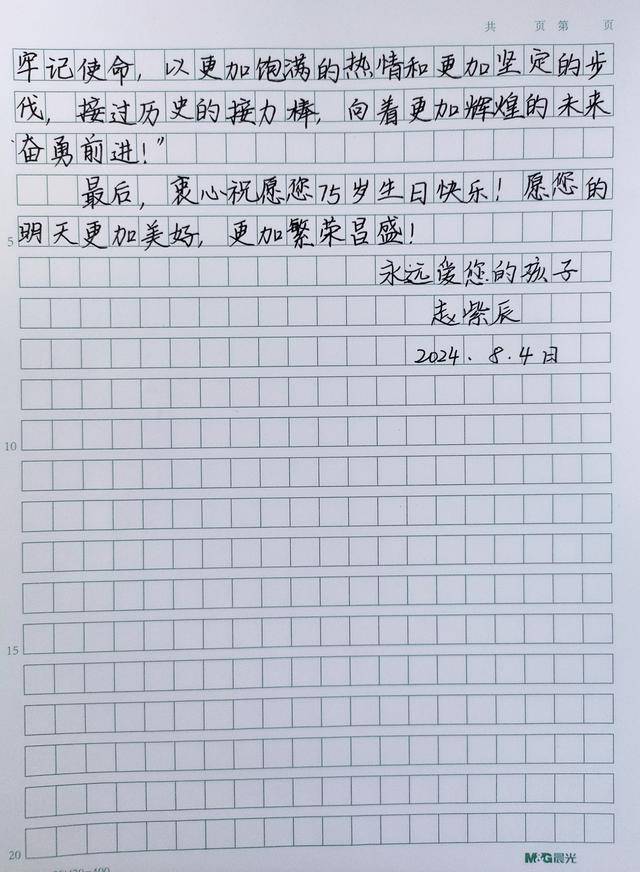 共 页 第 页
牢记使命，以更加饱满的热情和更加坚定的步
伐，接过历史的接力棒，向着更加辉煌的未来
奋勇前进！”
最后，衷心祝愿您75岁生日快乐！愿您的
5 明天更加美好，更加繁荣昌盛！
永远爱您的孩子
赵紫辰
2024.8.4日
10
15
20
M&G晨光